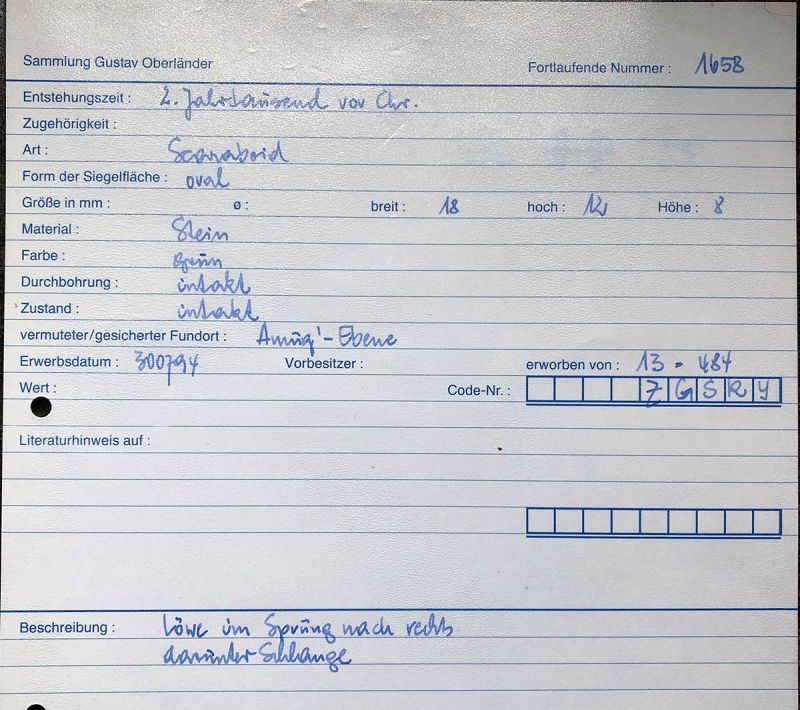 Sammlung Gustav Oberländer
Fortlaufende Nummer : 1658
Entstehungszeit : 2. Jahrtausend vor Chr.
Zugehörigkeit :
Art : Scaraboid
Form der Siegelfläche : oval
Größe in mm : ø : breit : 18 hoch : 12 Höhe : 8
Material : Stein
Farbe : grün
Durchbohrung : intakt
Zustand : intakt
vermuteter/gesicherter Fundort : Amuq'-Ebene
Erwerbsdatum : 300794 Vorbesitzer : erworben von : 13 - 484
Wert : Code-Nr. : Z G S R Y
Literaturhinweis auf :
Beschreibung : Löwe im Sprung nach rechts
darunter Schlange